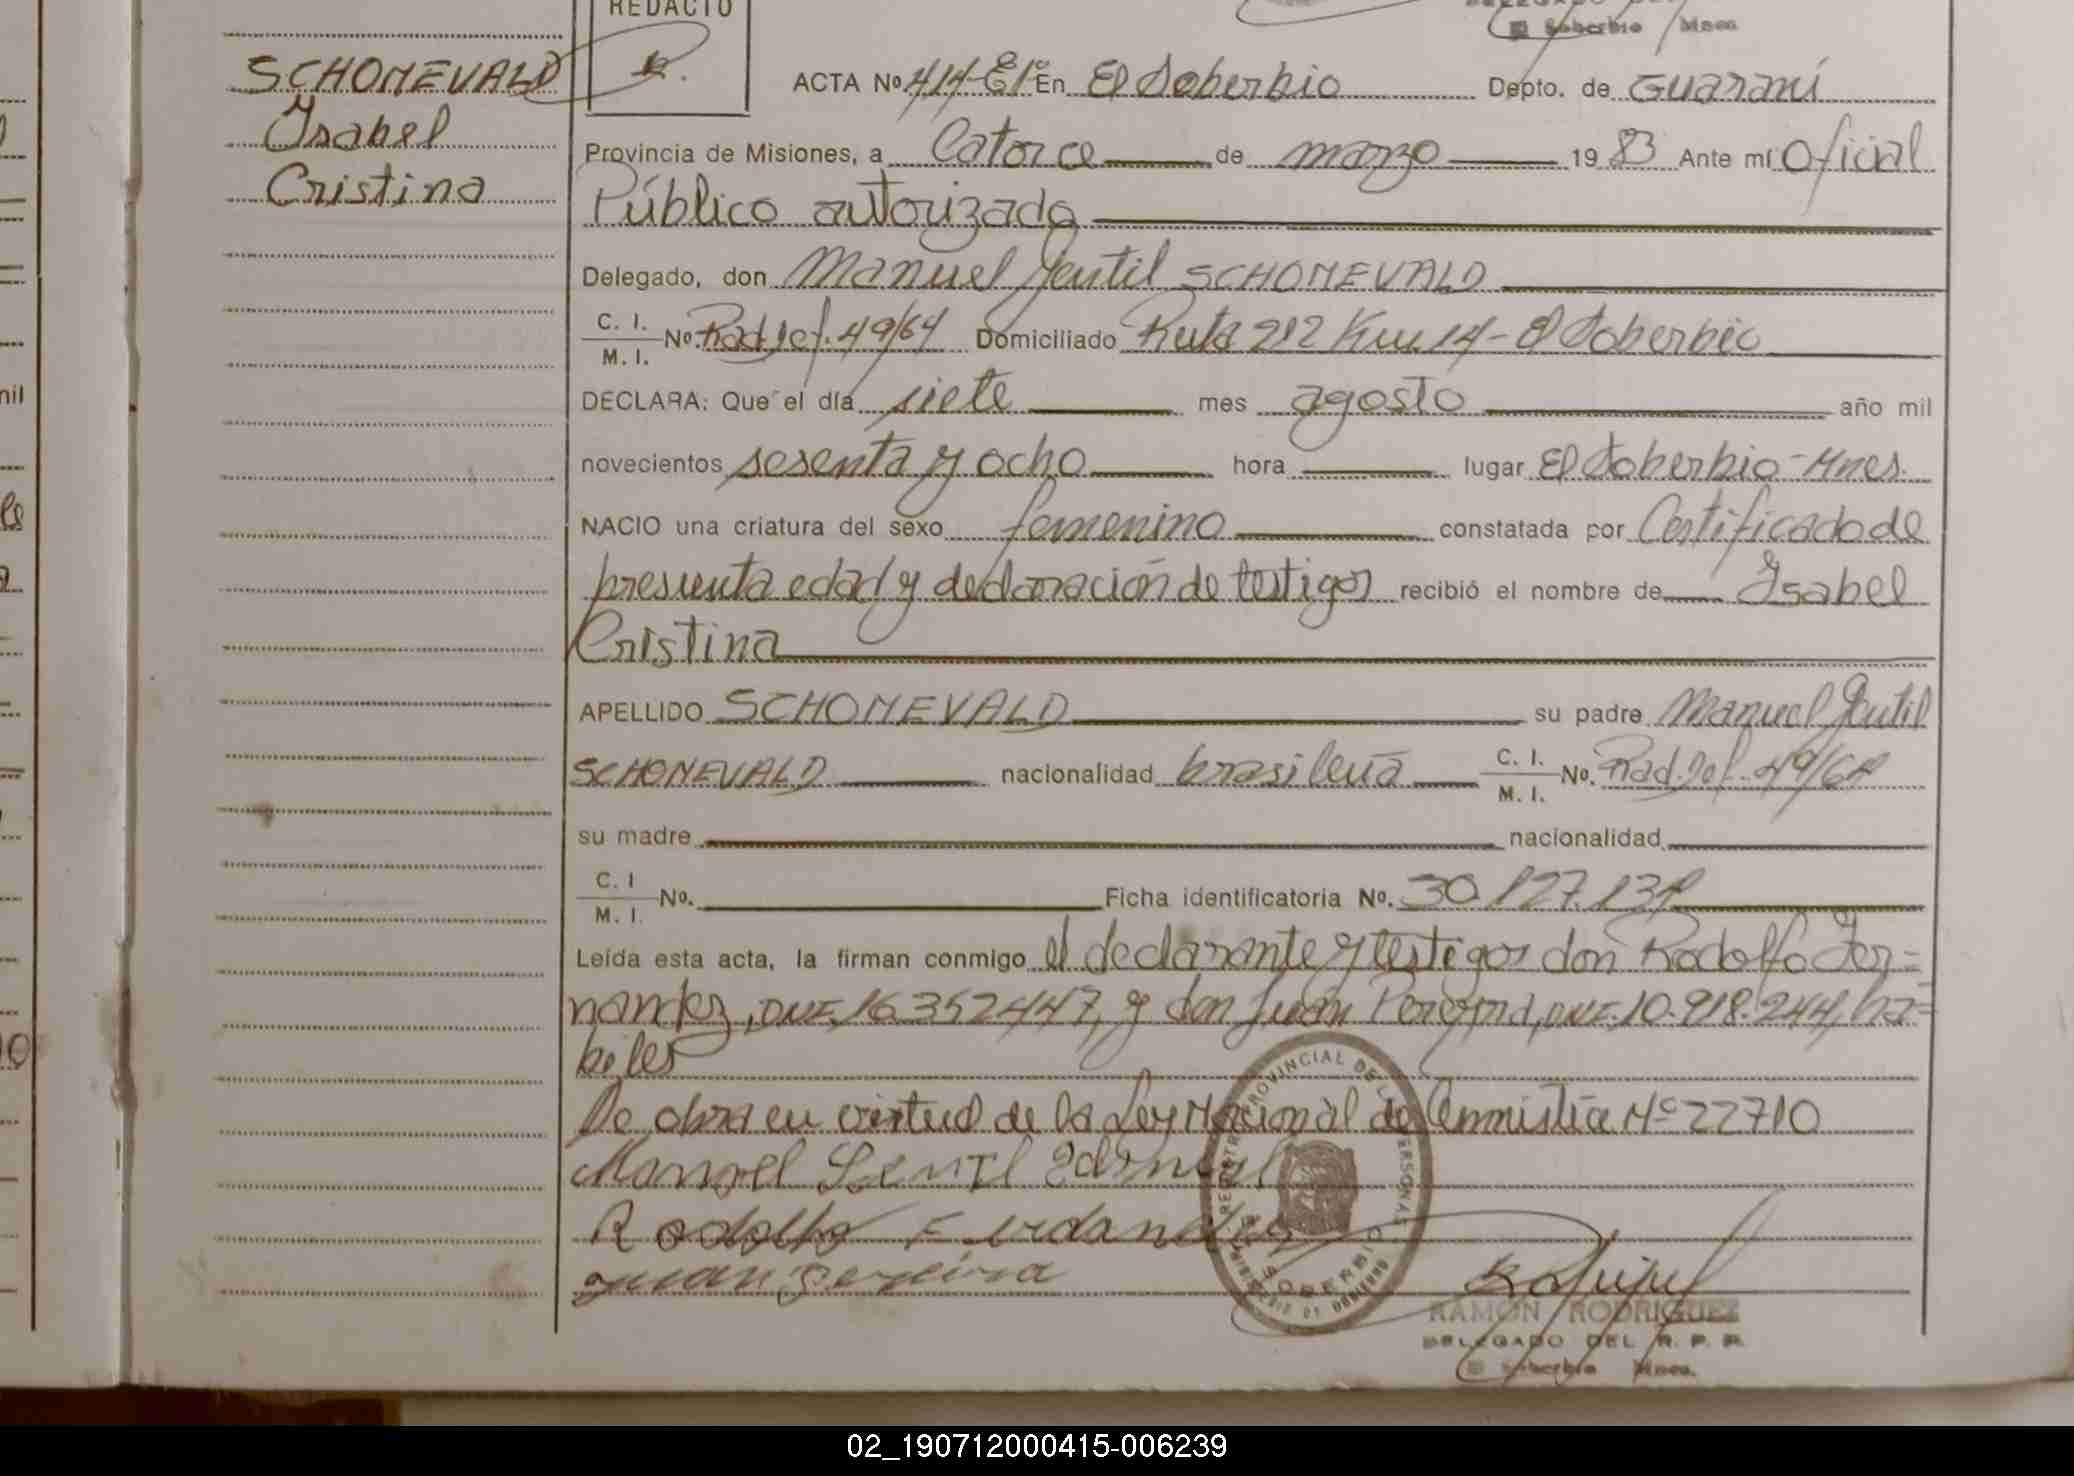 REDACTO
Soberbio Mnes.
SCHONEVALD
Isabel
Cristina
ACTA No. 414-E1º En El Soberbio Depto. de Guaraní
Provincia de Misiones, a Catorce de marzo 19 83 Ante mí Oficial
Público autorizado
Delegado, don Manuel Gentil SCHONEVALD
C. I.
M. I. No. Rad. Def. 49/64 Domiciliado Ruta 212 Km. 14 - El Soberbio
DECLARA: Que el día siete mes agosto año mil
novecientos sesenta y ocho hora lugar El Soberbio - Mnes.
NACIO una criatura del sexo femenino constatada por Certificado de
presunta edad y declaración de testigos recibió el nombre de Isabel
Cristina
APELLIDO SCHONEVALD su padre Manuel Gentil
SCHONEVALD nacionalidad brasileña C. I.
M. I. No. Rad. Def. 49/64
su madre nacionalidad
C. I
M. I. No. Ficha identificatoria No. 30.127.131
Leída esta acta, la firman conmigo el declarante y testigos don Rodolfo Fer=
nandez, DNI. 16.352447, y don Juan Pereyra, DNI. 10.918.244, há=
biles
De obra en virtud de la Ley Nacional de Amnistía Nº 22710
Manoel Gentil
Rodolfo
Juan Pereira
REGISTRO PROVINCIAL DE LAS PERSONAS
SOBERBIO
MINISTERIO DE GOBIERNO
RAMON RODRIGUEZ
DELEGADO DEL R. P. P.
El Soberbio Mnes.
02_190712000415-006239